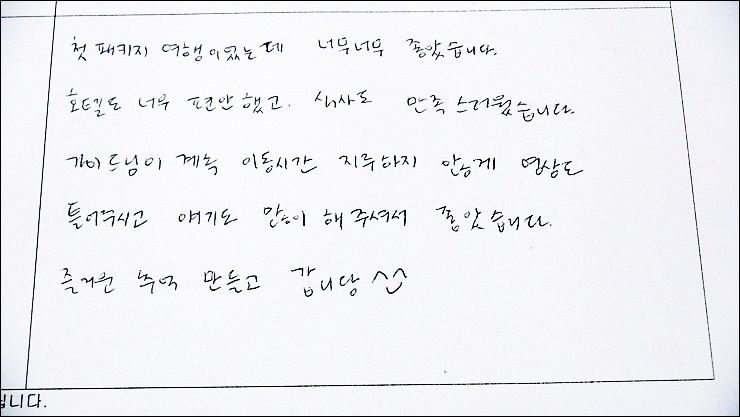 첫 패키지 여행이였는데 너무너무 좋았습니다.
호텔도 너무 편안했고. 식사도 만족스러웠습니다.
가이드님이 계속 이동시간 지루하지 안케 영상도
틀어주시고 얘기도 많이 해주셔서 좋았습니다.
즐거운 추억 만들고 갑니당 ^^
니다.